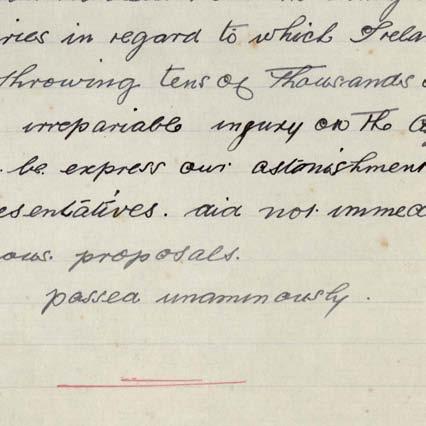 ries in regard to which Irela
Throwing tens of Thousands
irrepariable ingury on The
be express our astonishment
esentatives. did not immed
ous. proposals.
passed unaminously.